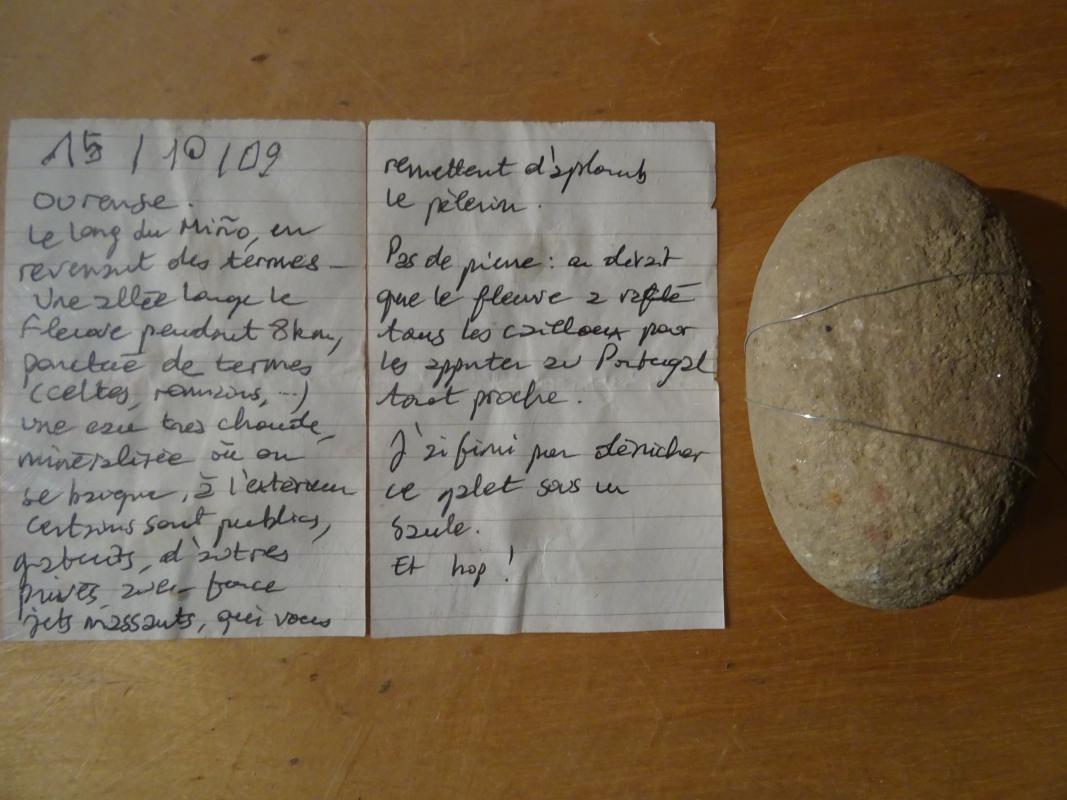 15/10/09
Ourense.
Le long du Miño, en
revenant des termes –
Une allée longe le
fleuve pendant 8km,
ponctuée de termes
(celtes, romains, ...)
une eau très chaude,
minéralisée où on
se baigne, à l'extérieur
certains sont publics,
gratuits, d'autres
privés, avec force
jets massants, qui vous
remettent d'aplomb
le pèlerin.
Pas de pierre : on dirait
que le fleuve a raflé
tous les cailloux pour
les apporter au Portugal
tout proche.
J'ai fini par dénicher
ce galet sous un
saule.
Et hop !